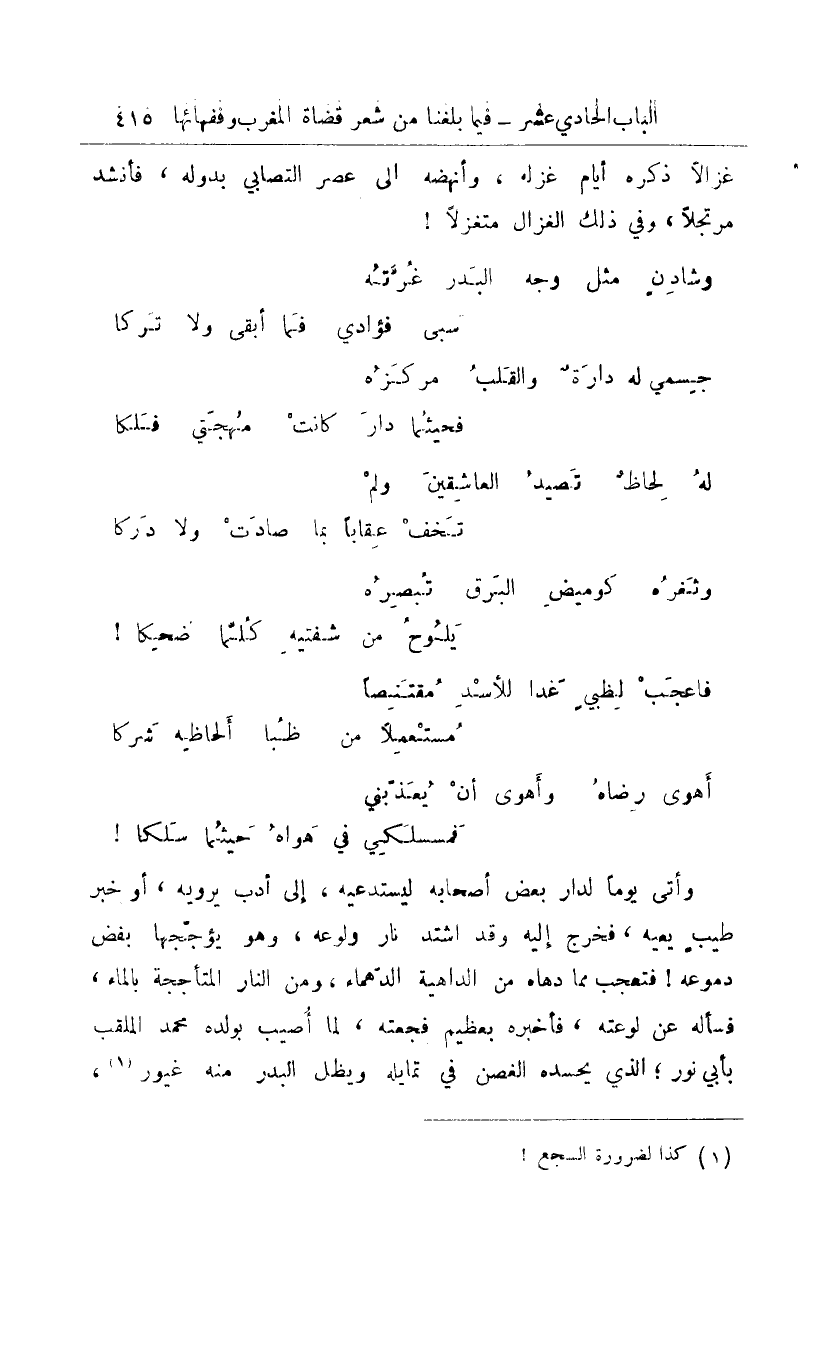 الباب الحادي عشر – فيما بلغنا من شعر قضاة المغرب وفقهائها ٤١٥
غزالاً ذكره أيام غزله ، وأنهضه الى عصر التصابي بدوله ، فأنشد
مرتجلاً ، وفي ذلك الغزال متغزلاً !
وشادِنٍ مثل وجه البَدر غُرَّتُه
سبى فؤادي فما أبقى ولا تَركا
جسمي له دارَةٌ والقَلبُ مركَزُه
فحيثُما دارَ كانتْ مُهجَتي فَلَكا
لهُ لِحاظٌ تَصيدُ العاشِقينَ ولمْ
تَخفْ عِقاباً بما صادَتْ ولا دَركا
وثَغرُه كَوميضِ البَرق تُبصِرُه
يَلُوحُ من شفتيهِ كُلَّما ضَحِكا !
فاعجَبْ لِظبيٍ غَدا للأسْدِ مُقتَنِصاً
مُستَعمِلاً من ظُبا أَلحاظِهِ شَركا
أَهوى رِضاهُ وأَهوى أنْ يُعَذّبَني
فَمسلَكي في هَواهُ حَيثُما سَلَكا !
وأتى يوماً لدار بعض أصحابه ليستدعيه ، إلى أدب يرويه ، أو خبر
طيبٍ يعيه ، فخرج إليه وقد اشتد نار ولوعه ، وهو يؤجّجها بفض
دموعه ! فتعجب مما دهاه من الداهية الدّهماء ، ومن النار المتأججة بالماء ،
فسأله عن لوعته ، فأخبره بعظيم فجعته ، لما أُصيب بولده محمد الملقب
بأبي نور ؛ الذي يحسده الغصن في تمايله ويظل البدر منه غيور (١) ،
(١) كذا لضرورة السجع !